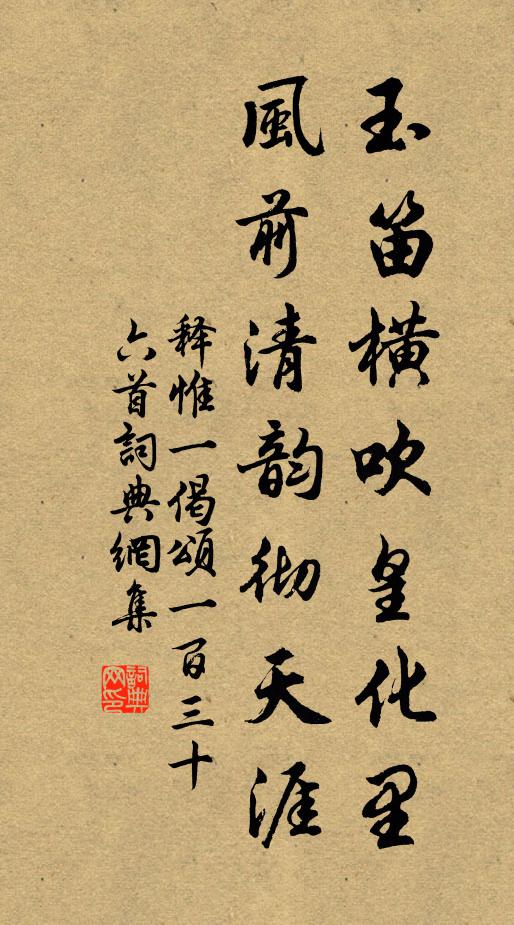 玉笛橫吹皇化里
風前清韵彻天涯
释惟一偈頌一百三十
六首詞典網集
詞典
网印